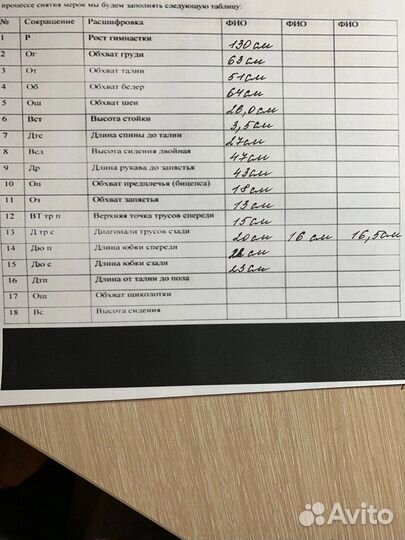 процессе снятия мерок мы будем заполнять следующую таблицу:
№ Сокращение Расшифровка ФИО ФИО ФИО
1 Р Рост гимнастки 130 см
2 Ог Обхват груди 63 см
3 От Обхват талии 51 см
4 Об Обхват бедер 64 см
5 Ош Обхват шеи 26,0 см
6 Вст Высота стойки 3,5 см
7 Дтс Длина спины до талии 27 см
8 Всд Высота сидения двойная 47 см
9 Др Длина рукава до запястья 43 см
10 Оп Обхват предплечья (бицепса) 18 см
11 Оз Обхват запястья 13 см
12 ВТ тр п Верхняя точка трусов спереди 15 см
13 Д тр с Диагонали трусов сзади 20 см 16 см 16,5 см
14 Дю п Длина юбки спереди см
15 Дю с Длина юбки сзади 23 см
16 Дтп Длина от талии до пола
17 Ощ Обхват щиколотки
18 Вс Высота сидения
Avito